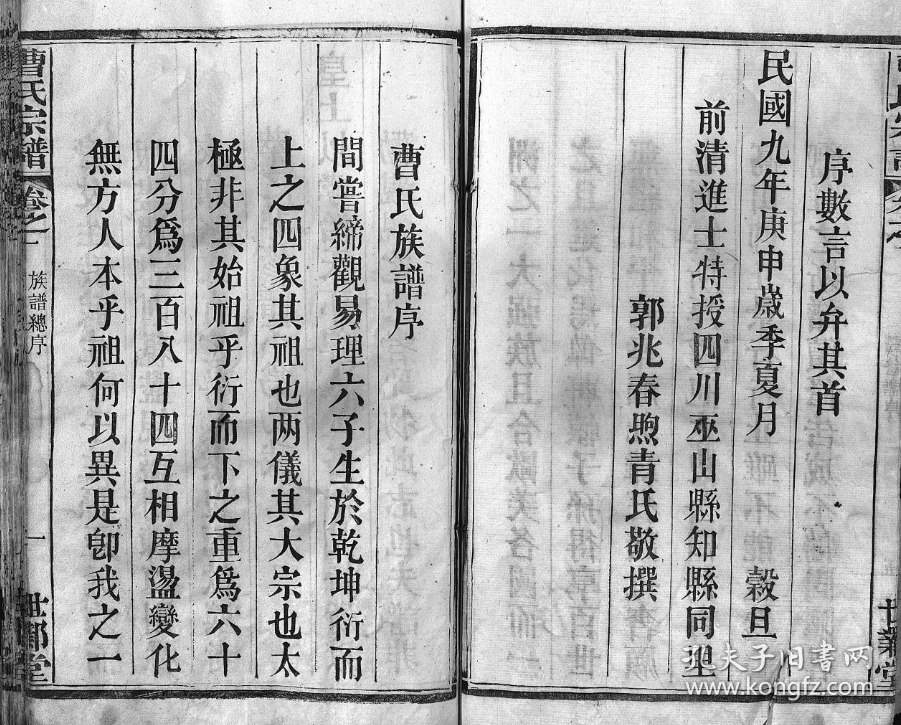 序數言以弁其首
民國九年庚申歲季夏月　穀旦
前清進士特授四川巫山縣知縣同里
郭兆春煦青氏敬撰
曹氏族譜序
間嘗締觀易理六子生於乾坤衍而
上之四象其祖也两儀其大宗也太
極非其始祖乎衍而下之重爲六十
四分爲三百八十四互相摩盪變化
無方人本乎祖何以異是卽我之一
曹氏宗譜
卷之一
族譜總序
一
堂
孔夫子旧书网
www.kongfz.com